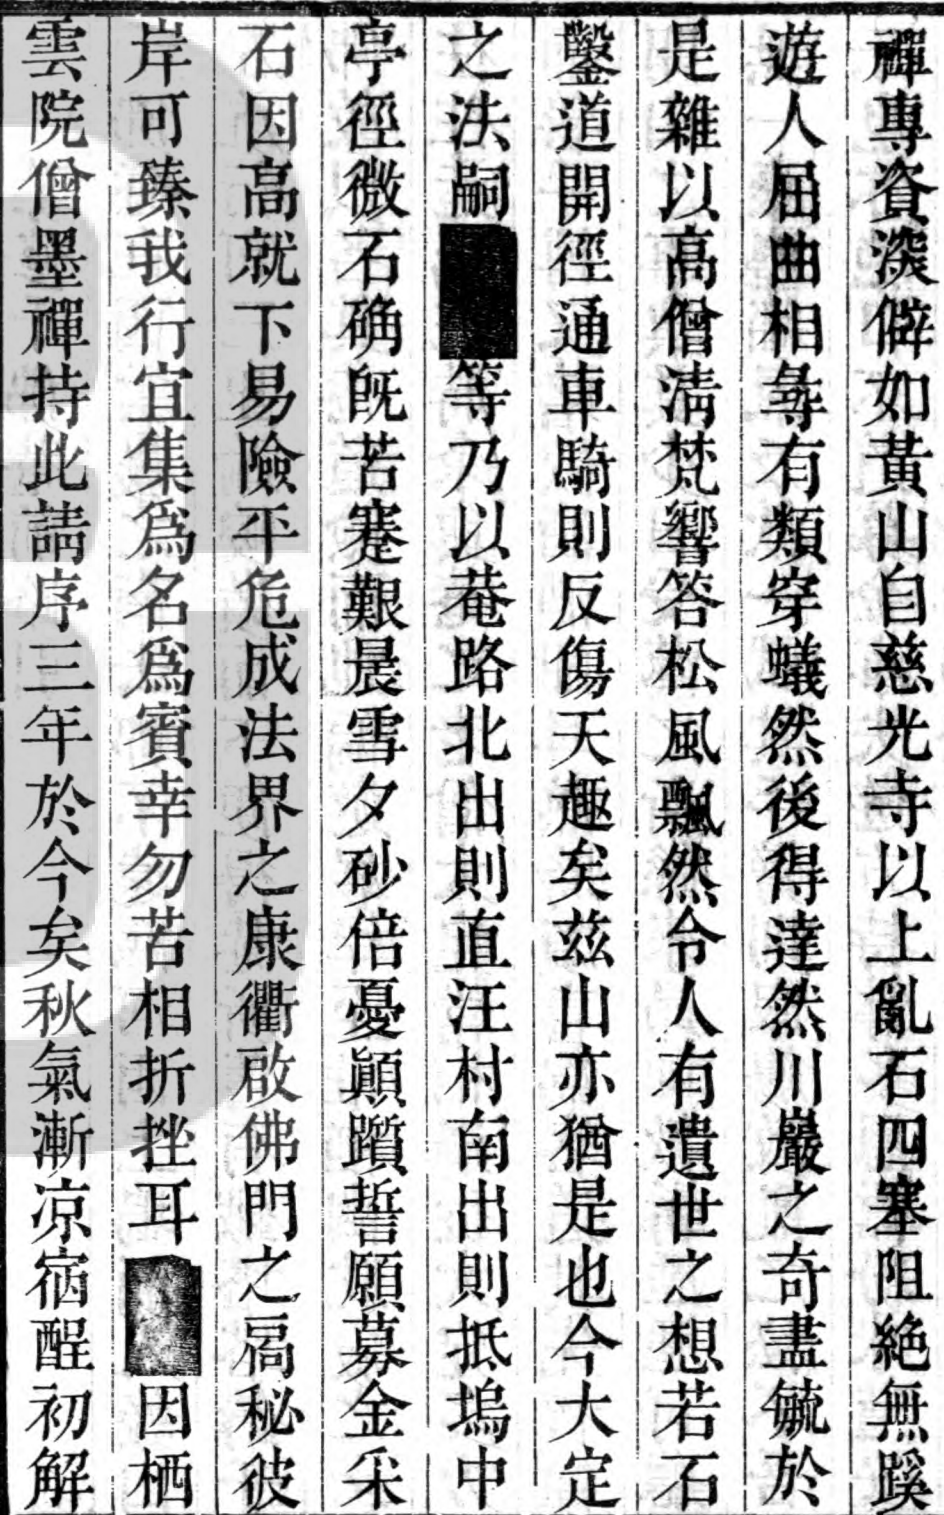 禪專資深僻如黃山自慈光寺以上亂石四塞阻絶無蹊
遊人屈曲相尋有類穿蟻然後得達然川巖之奇盡毓於
是雜以高僧淸梵響答松風飄然令人有遺世之想若石
鑿道開徑通車騎則反傷天趣矣茲山亦猶是也今大定
之法嗣等乃以菴路北出則直汪村南出則抵塢中
亭徑微石确旣苦蹇艱晨雪夕砂倍憂顚躓誓願募金采
石因高就下易險平危成法界之康衢啟佛門之扃秘彼
岸可臻我行宜集爲名爲賓幸勿苦相折挫耳因栖
雲院僧墨禪持此請序三年於今矣秋氣漸凉宿酲初解